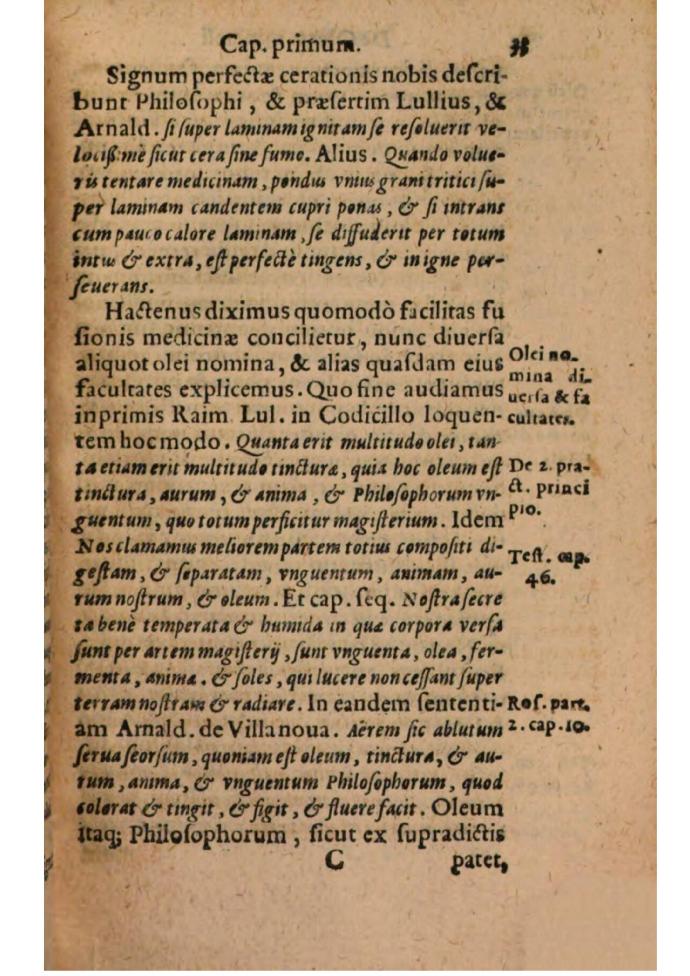 Cap. primum. 33
Signum perfectæ cerationis nobis deſcri-
bunt Philoſophi, & præſertim Lullius, &
Arnald. ſi ſuper laminam ignitam ſe reſoluerit ve-
lociß:mè ſicut cera ſine fumo. Alius. Quando volue-
ris tentare medicinam, pondus vnius grani tritici ſu-
per laminam candentem cupri ponas, & ſi intrans
cum pauco calore laminam, ſe diffuderit per totum
intus & extra, eſt perfectè tingens, & in igne per-
ſeuerans.
Hactenus diximus quomodò facilitas fu
ſionis medicinæ concilietur, nunc diuerſa
aliquot olei nomina, & alias quaſdam eius
facultates explicemus. Quo fine audiamus
inprimis Raim Lul. in Codicillo loquen-
tem hoc modo. Quanta erit multitudo olei, tan-
ta etiam erit multitudo tincturæ, quia hoc oleum eſt
tinctura, aurum, & anima, & Philoſophorum vn-
guentum, quo totum perficitur magiſterium. Idem
Nos clamamus meliorem partem totius compoſiti di-
geſtam, & ſeparatam, vnguentum, animam, au-
rum noſtrum, & oleum. Et cap. ſeq. Noſtra ſecre
ta benè temperata & humida in quæ corpora verſa
ſunt per artem magiſterij, ſunt vnguenta, olea, fer-
menta, anima. & ſoles, qui lucere non ceſſant ſuper
terram noſtram & radiare. In eandem ſententi-
am Arnald. de Villanoua. Aërem ſic ablutum
ſerua ſeorſum, quoniam eſt oleum, tinctura, & au-
rum, anima, & vnguentum Philoſophorum, quod
colorat & tingit, & figit, & fluere facit. Oleum
itaq; Philoſophorum, ſicut ex ſupradictis
C patet,
Olei no-
mina di-
uerſa & fa
cultates.
De 2. pra-
ct. princi
pio.
Teſt. cap.
46.
Roſ. part.
2. cap. 10.